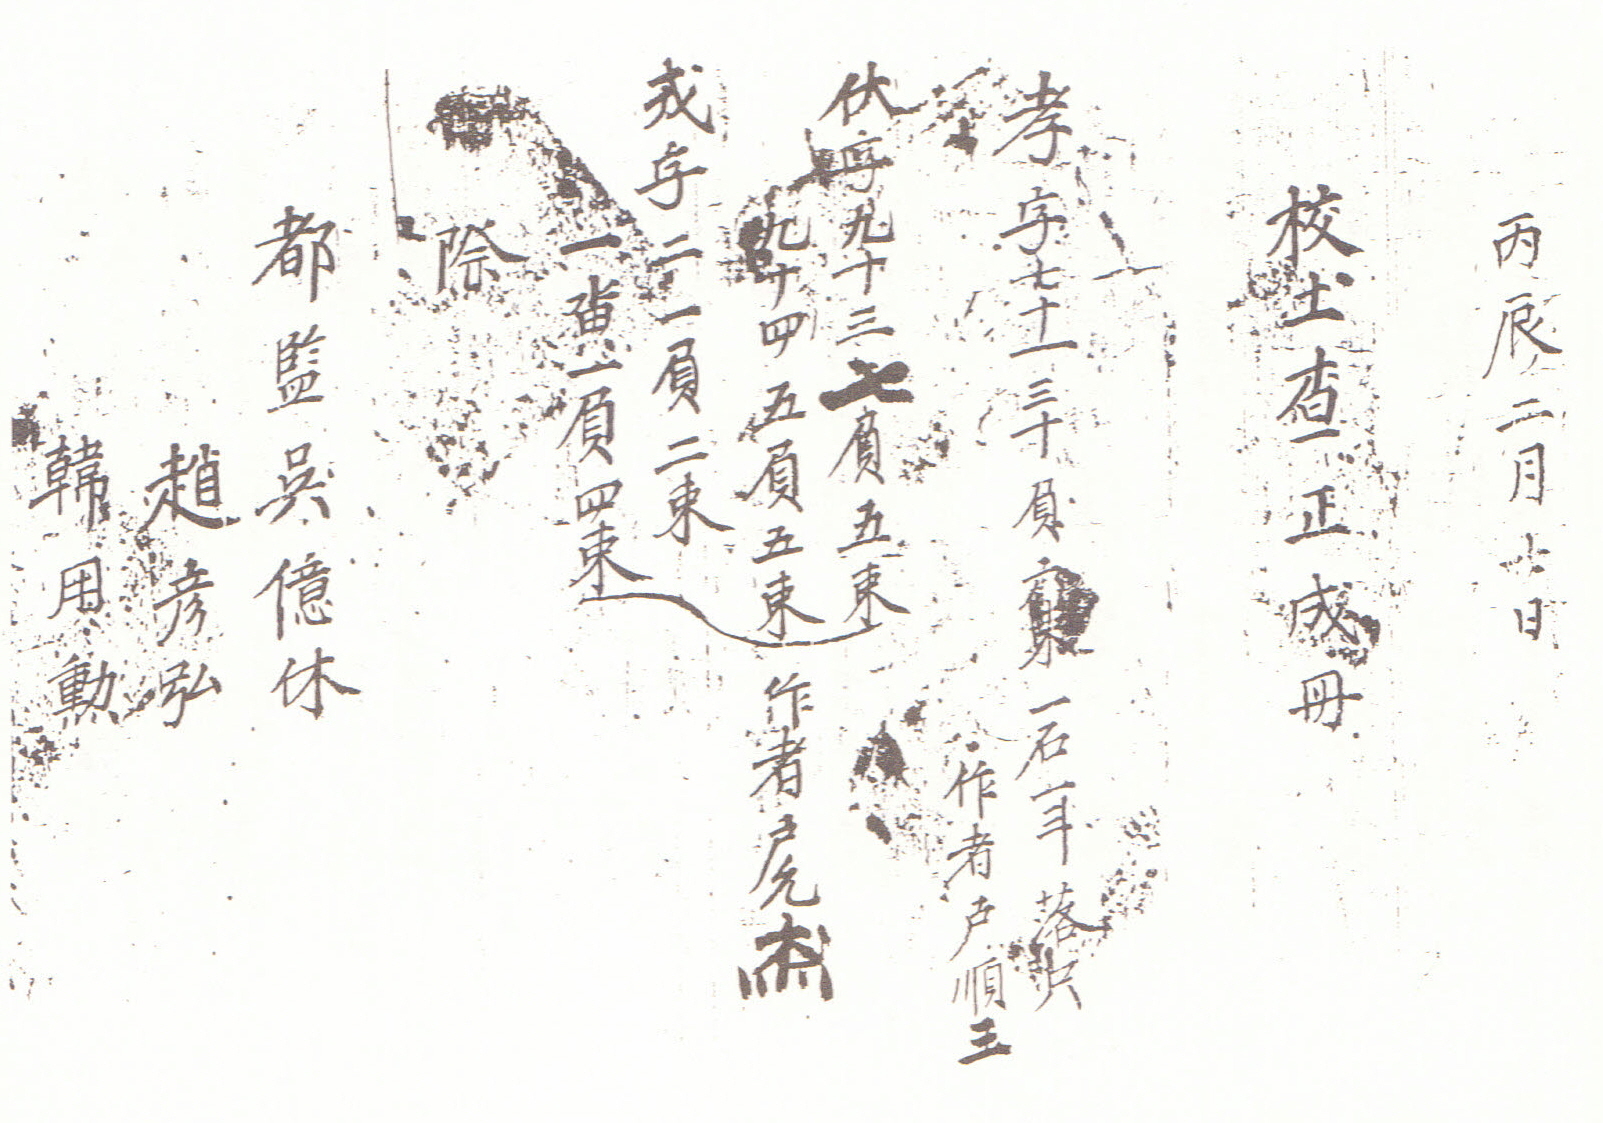 丙辰二月十日
校土查正成冊
孝字七十一三十負 一石二斗落只
作者戶順王
伏字九十三七負五束
九十四五負五束 作者戶允
戎字二一負二束
一負四束
際
都監吳億休
趙彦弘
韓用勳